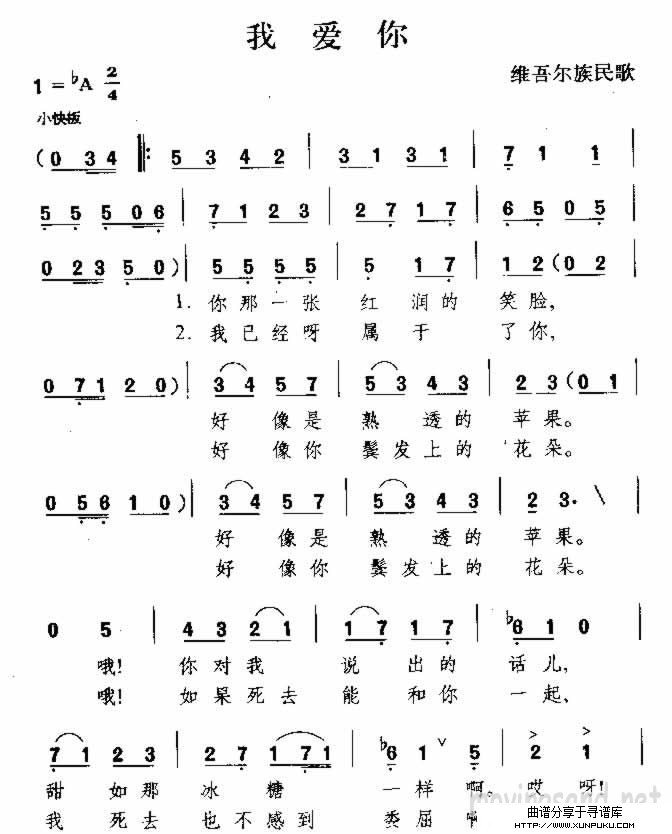 我爱你
1=♭A 2/4
维吾尔族民歌
小快板
(0 34 ‖: 53 42 | 31 31 | 7 1 1 |
55 506 | 71 23 | 27 17 | 65 05 |
023 50) | 55 55 | 5 17 | 12 (02 |
1. 你那一张 红润的 笑脸,
2. 我已经呀 属于 了你,
071 20) | 34 57 | 53 43 | 23 (01 |
好像是 熟透的 苹果。
好像你 鬓发上的 花朵。
056 10) | 34 57 | 53 43 | 2 3· \ |
好像是 熟透的 苹果。
好像你 鬓发上的 花朵。
0 5 | 43 21 | 17 17 | ♭61 0 |
哦! 你对我 说出的 话儿,
哦! 如果死去 能和你 一起,
71 23 | 27 171 | ♭6 1 ∨ 5 | 2 1 |
甜如那 冰糖 一样啊。 哎呀!
我死去 也不感到 委屈
曲谱分享于寻谱库
HTTP://WWW.XUNPUKU.COM